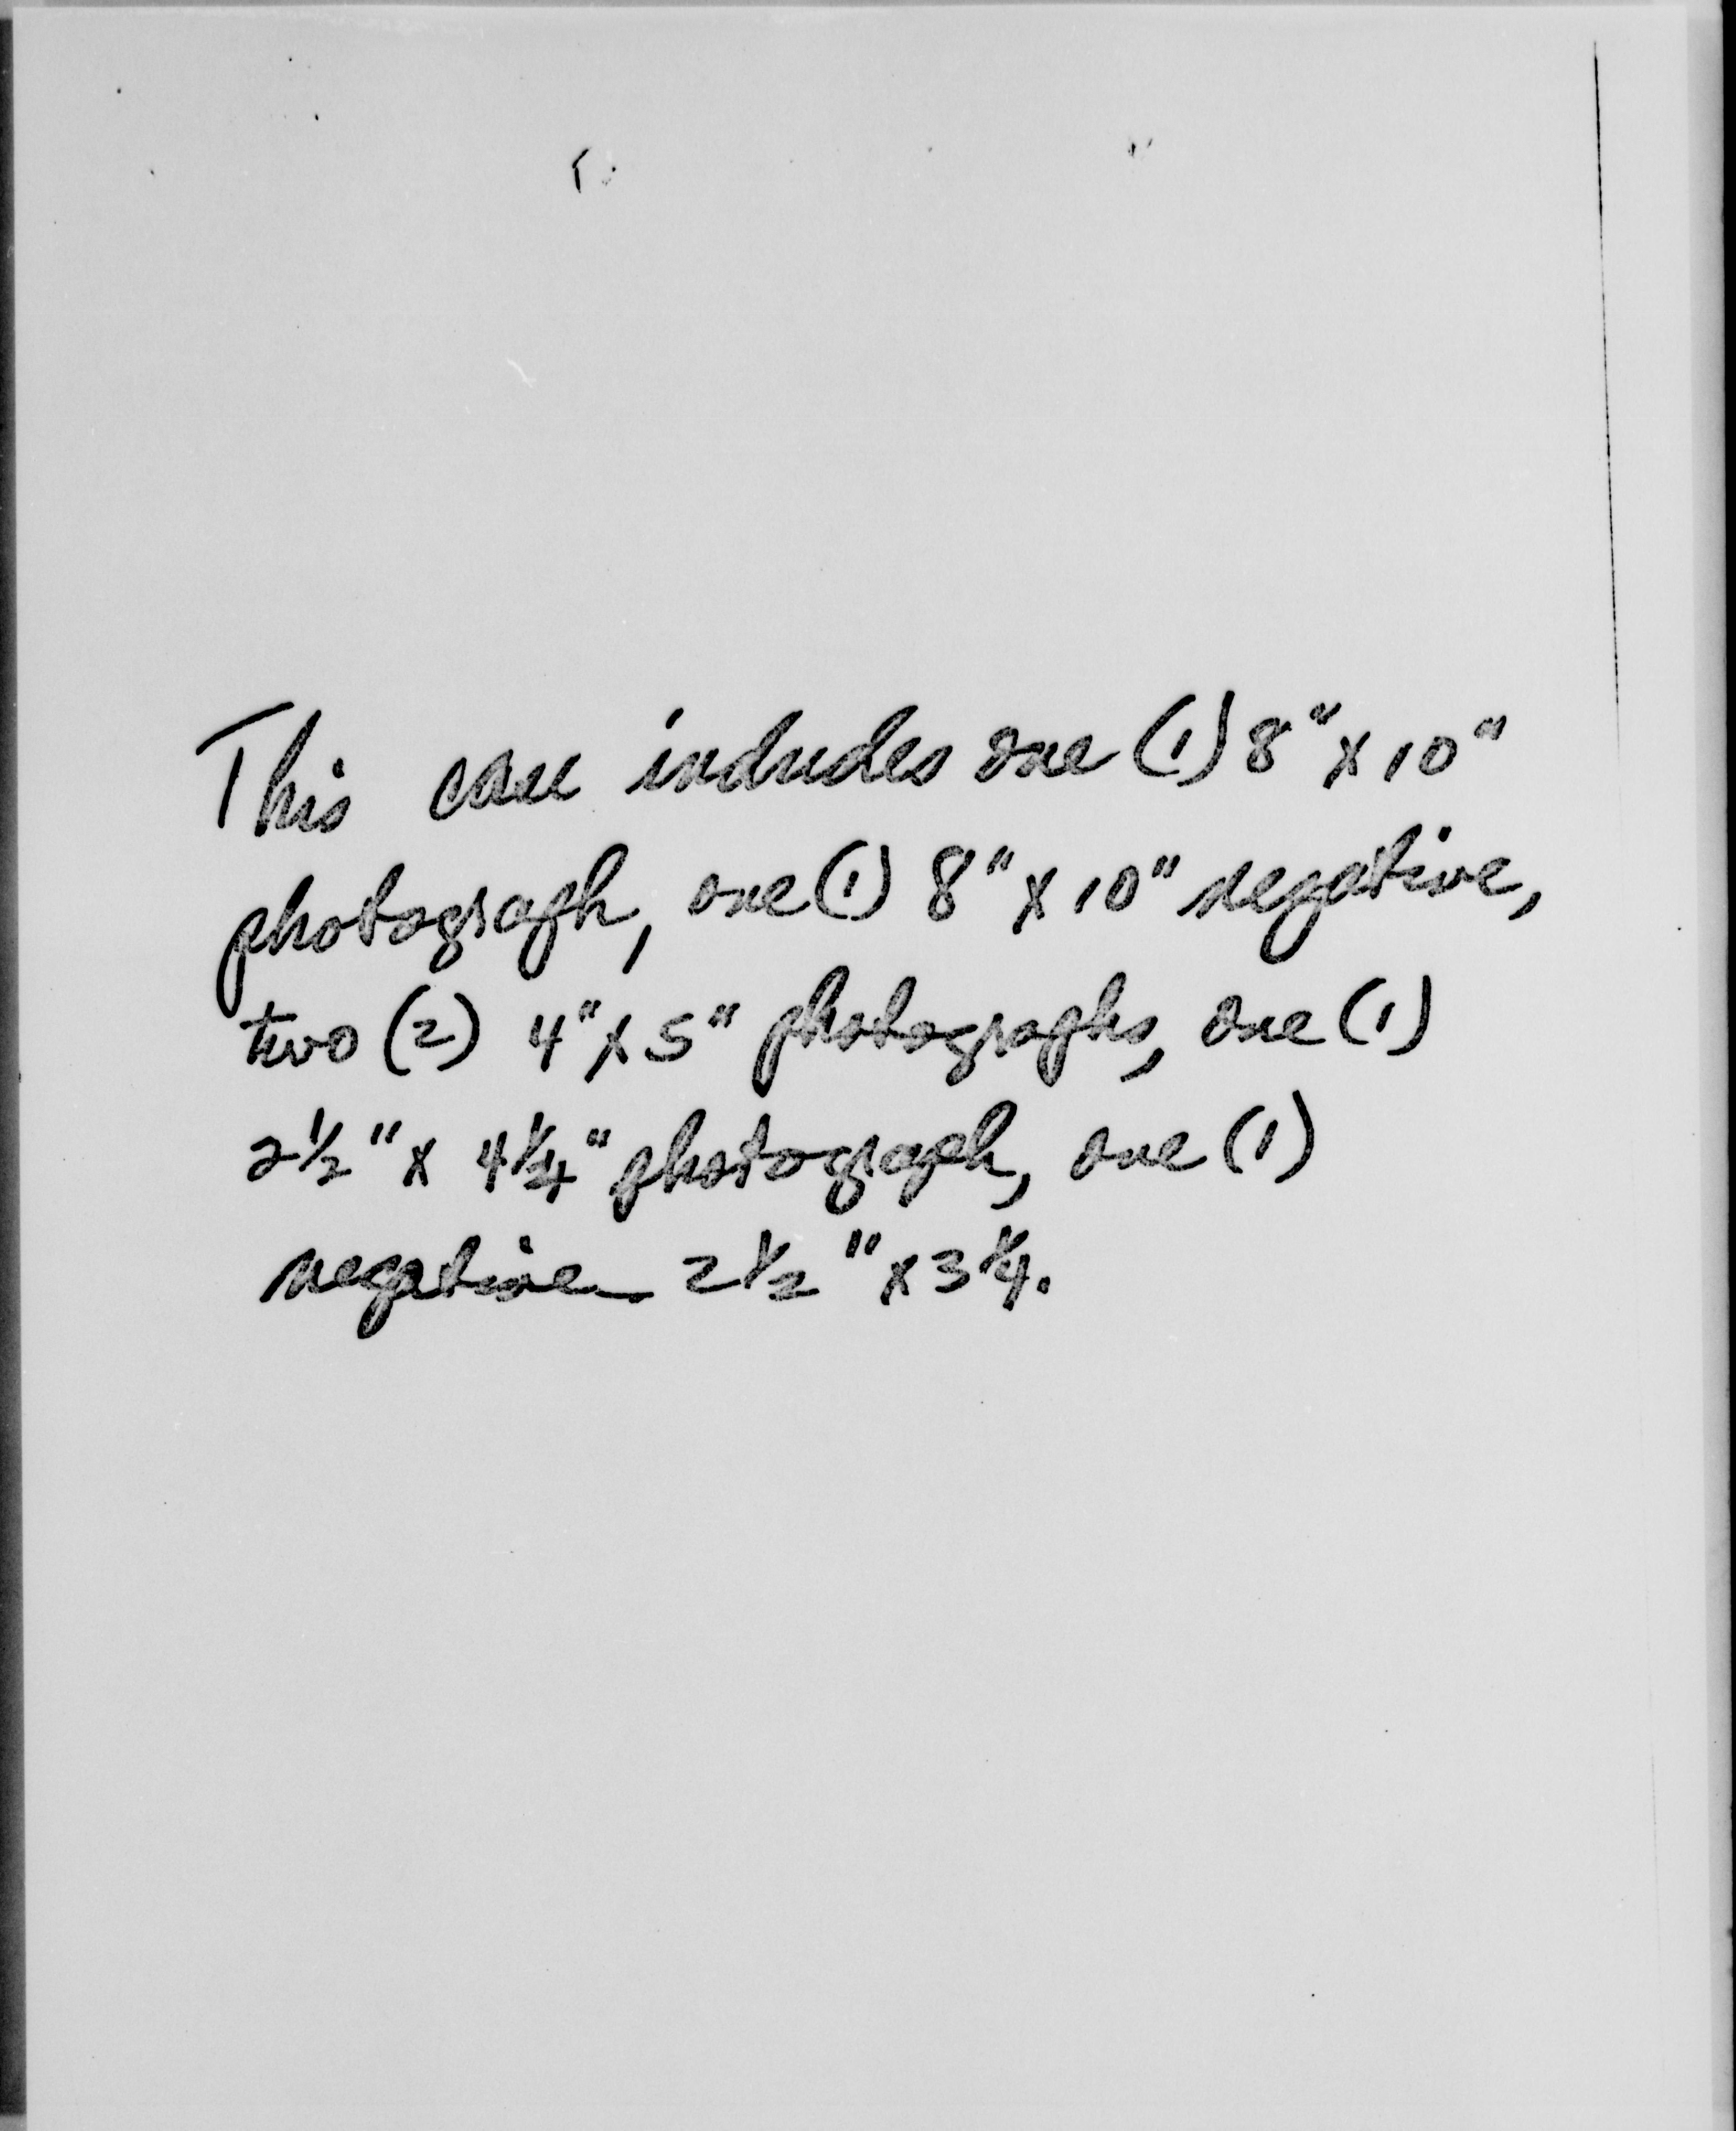 This case includes one (1) 8" x 10"
photograph, one (1) 8" x 10" negative,
two (2) 4" x 5" photographs, one (1)
2 1/2" x 4 1/4" photograph, one (1)
negative 2 1/2" x 3 1/4.